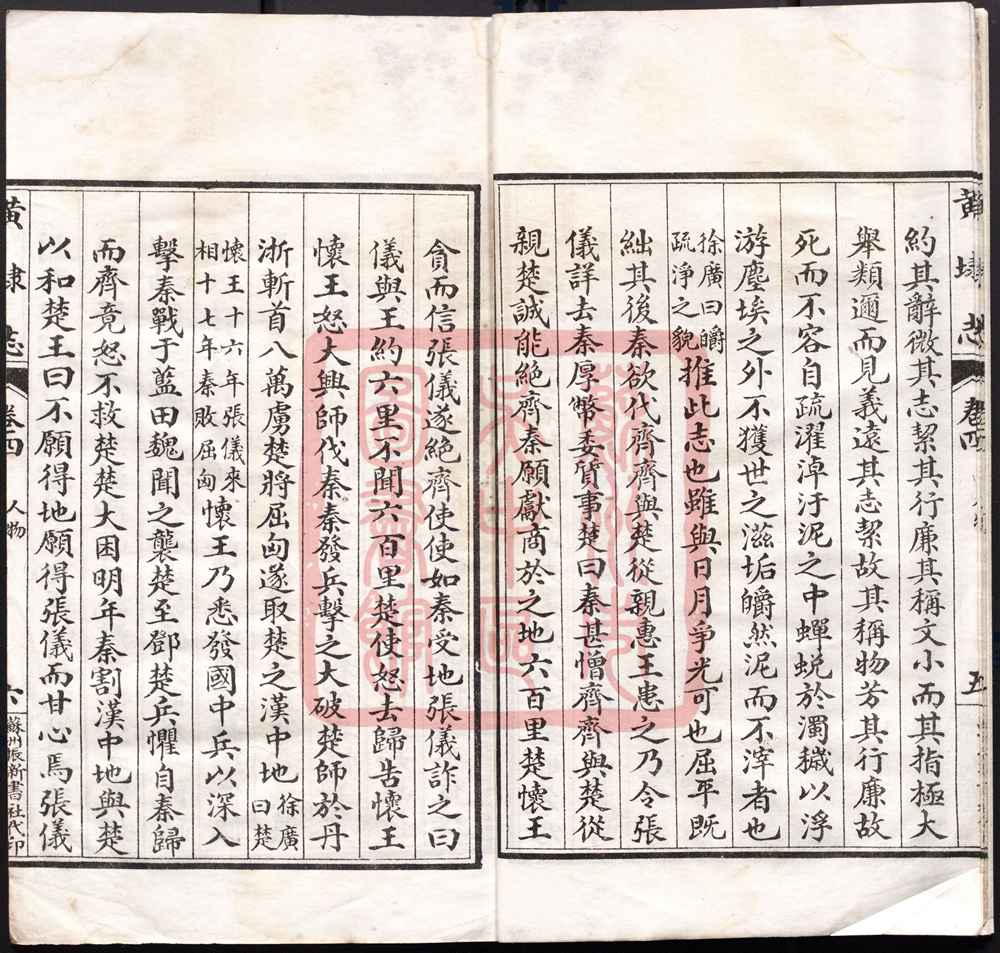 黄埭志
卷四
五
約其辭微其志絜其行廉其稱文小而其指極大
舉類邇而見義遠其志絜故其稱物芳其行廉故
死而不容自疏濯淖汙泥之中蟬蛻於濁穢以浮
游塵埃之外不獲世之滋垢皭然泥而不滓者也
徐廣曰皭
疏淨之貌
推此志也雖與日月爭光可也屈平既
絀其後秦欲伐齊齊與楚從親惠王患之乃令張
儀詳去秦厚幣委質事楚曰秦甚憎齊齊與楚從
親楚誠能絕齊秦願獻商於之地六百里楚懷王
貪而信張儀遂絕齊使使如秦受地張儀詐之曰
儀與王約六里不聞六百里楚使怒去歸告懷王
懷王怒大興師伐秦秦發兵擊之大破楚師於丹
淅斬首八萬虜楚將屈匄遂取楚之漢中地
徐廣
曰楚
懷王十六年張儀來
相十七年秦敗屈匄
懷王乃悉發國中兵以深入
擊秦戰于藍田魏聞之襲楚至鄧楚兵懼自秦歸
而齊竟怒不救楚楚大困明年秦割漢中地與楚
以和楚王曰不願得地願得張儀而甘心焉張儀
黄埭志
卷四
人物
六
蘇州振新書社代印